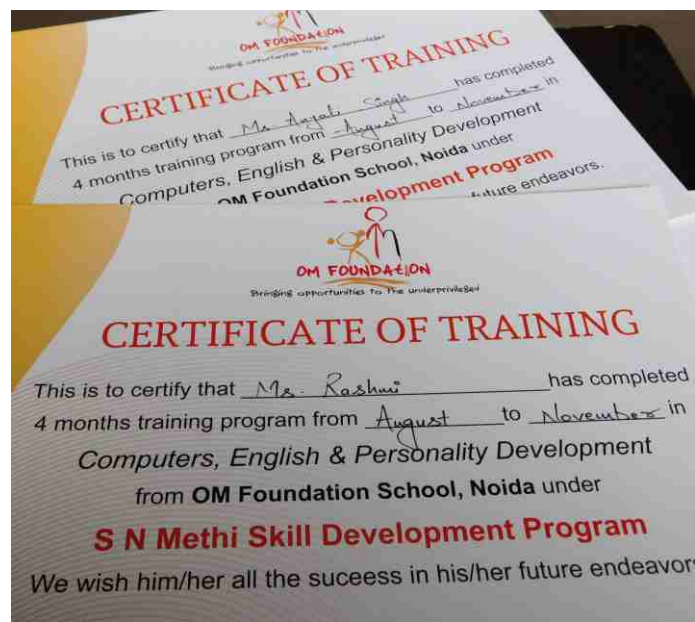 OM FOUNDATION
Bringing opportunities to the underprivileged
CERTIFICATE OF TRAINING
This is to certify that Ms. Anjali Singh has completed
4 months training program from August to November in
Computers, English & Personality Development
OM Foundation School, Noida under
velopment Program
future endeavors.
OM FOUNDATION
Bringing opportunities to the underprivileged
CERTIFICATE OF TRAINING
This is to certify that Ms. Rashmi has completed
4 months training program from August to November in
Computers, English & Personality Development
from OM Foundation School, Noida under
S N Methi Skill Development Program
We wish him/her all the suceess in his/her future endeavors